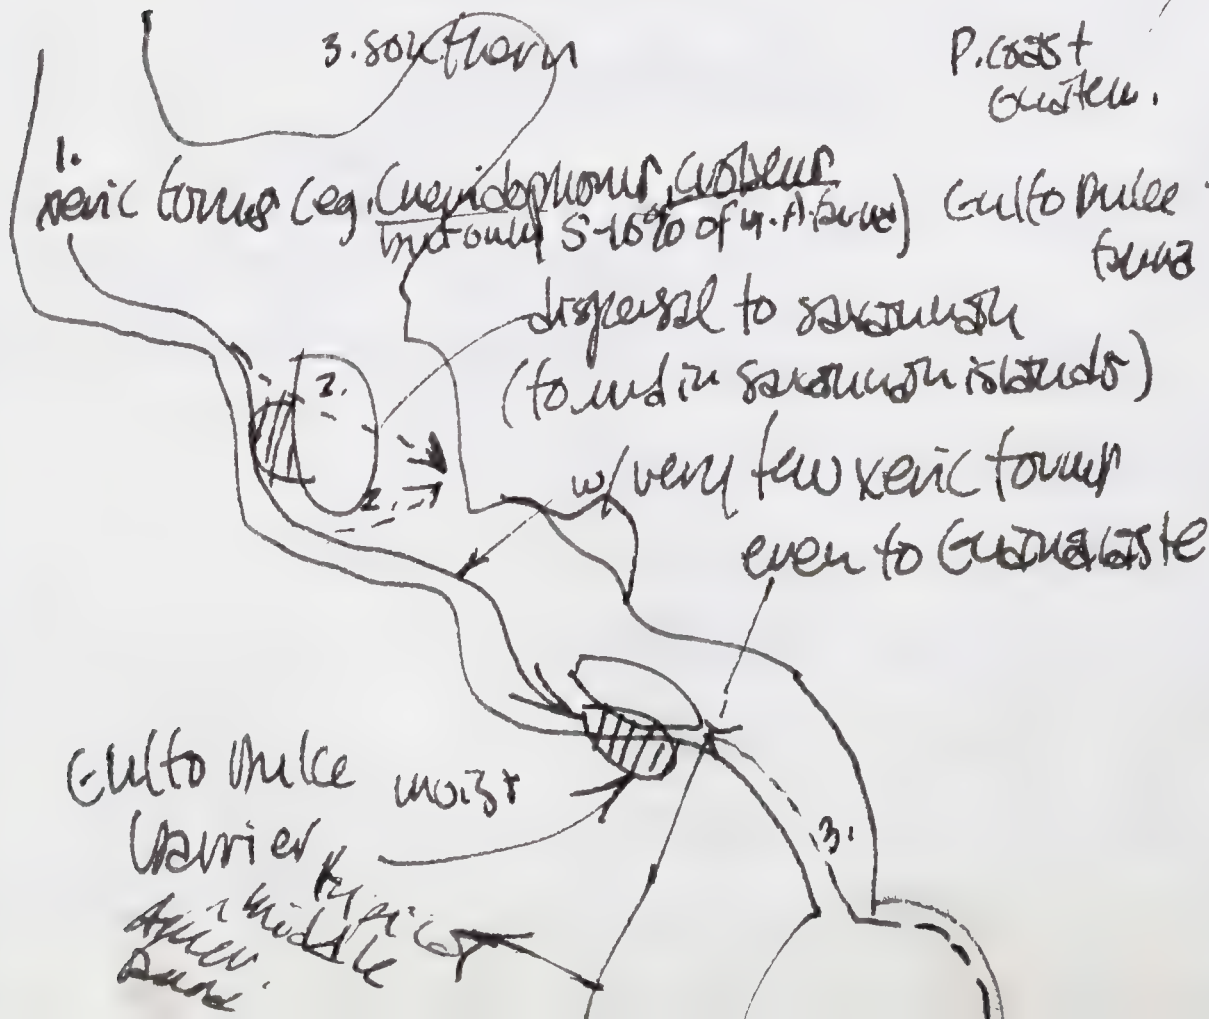 3. southern
P. coast
Guatem.
1.
xeric forms (eg. Cnemidophorus,
but only 5-10% of M.A. fauna)
Gulfo Dulce
fauna
dispersal to savannah
(found in savannah islands)
2.
2.
w/ very few xeric forms
even to Guanacaste
Gulfo Dulce
barrier
moist
3.
typical
Middle
Amer